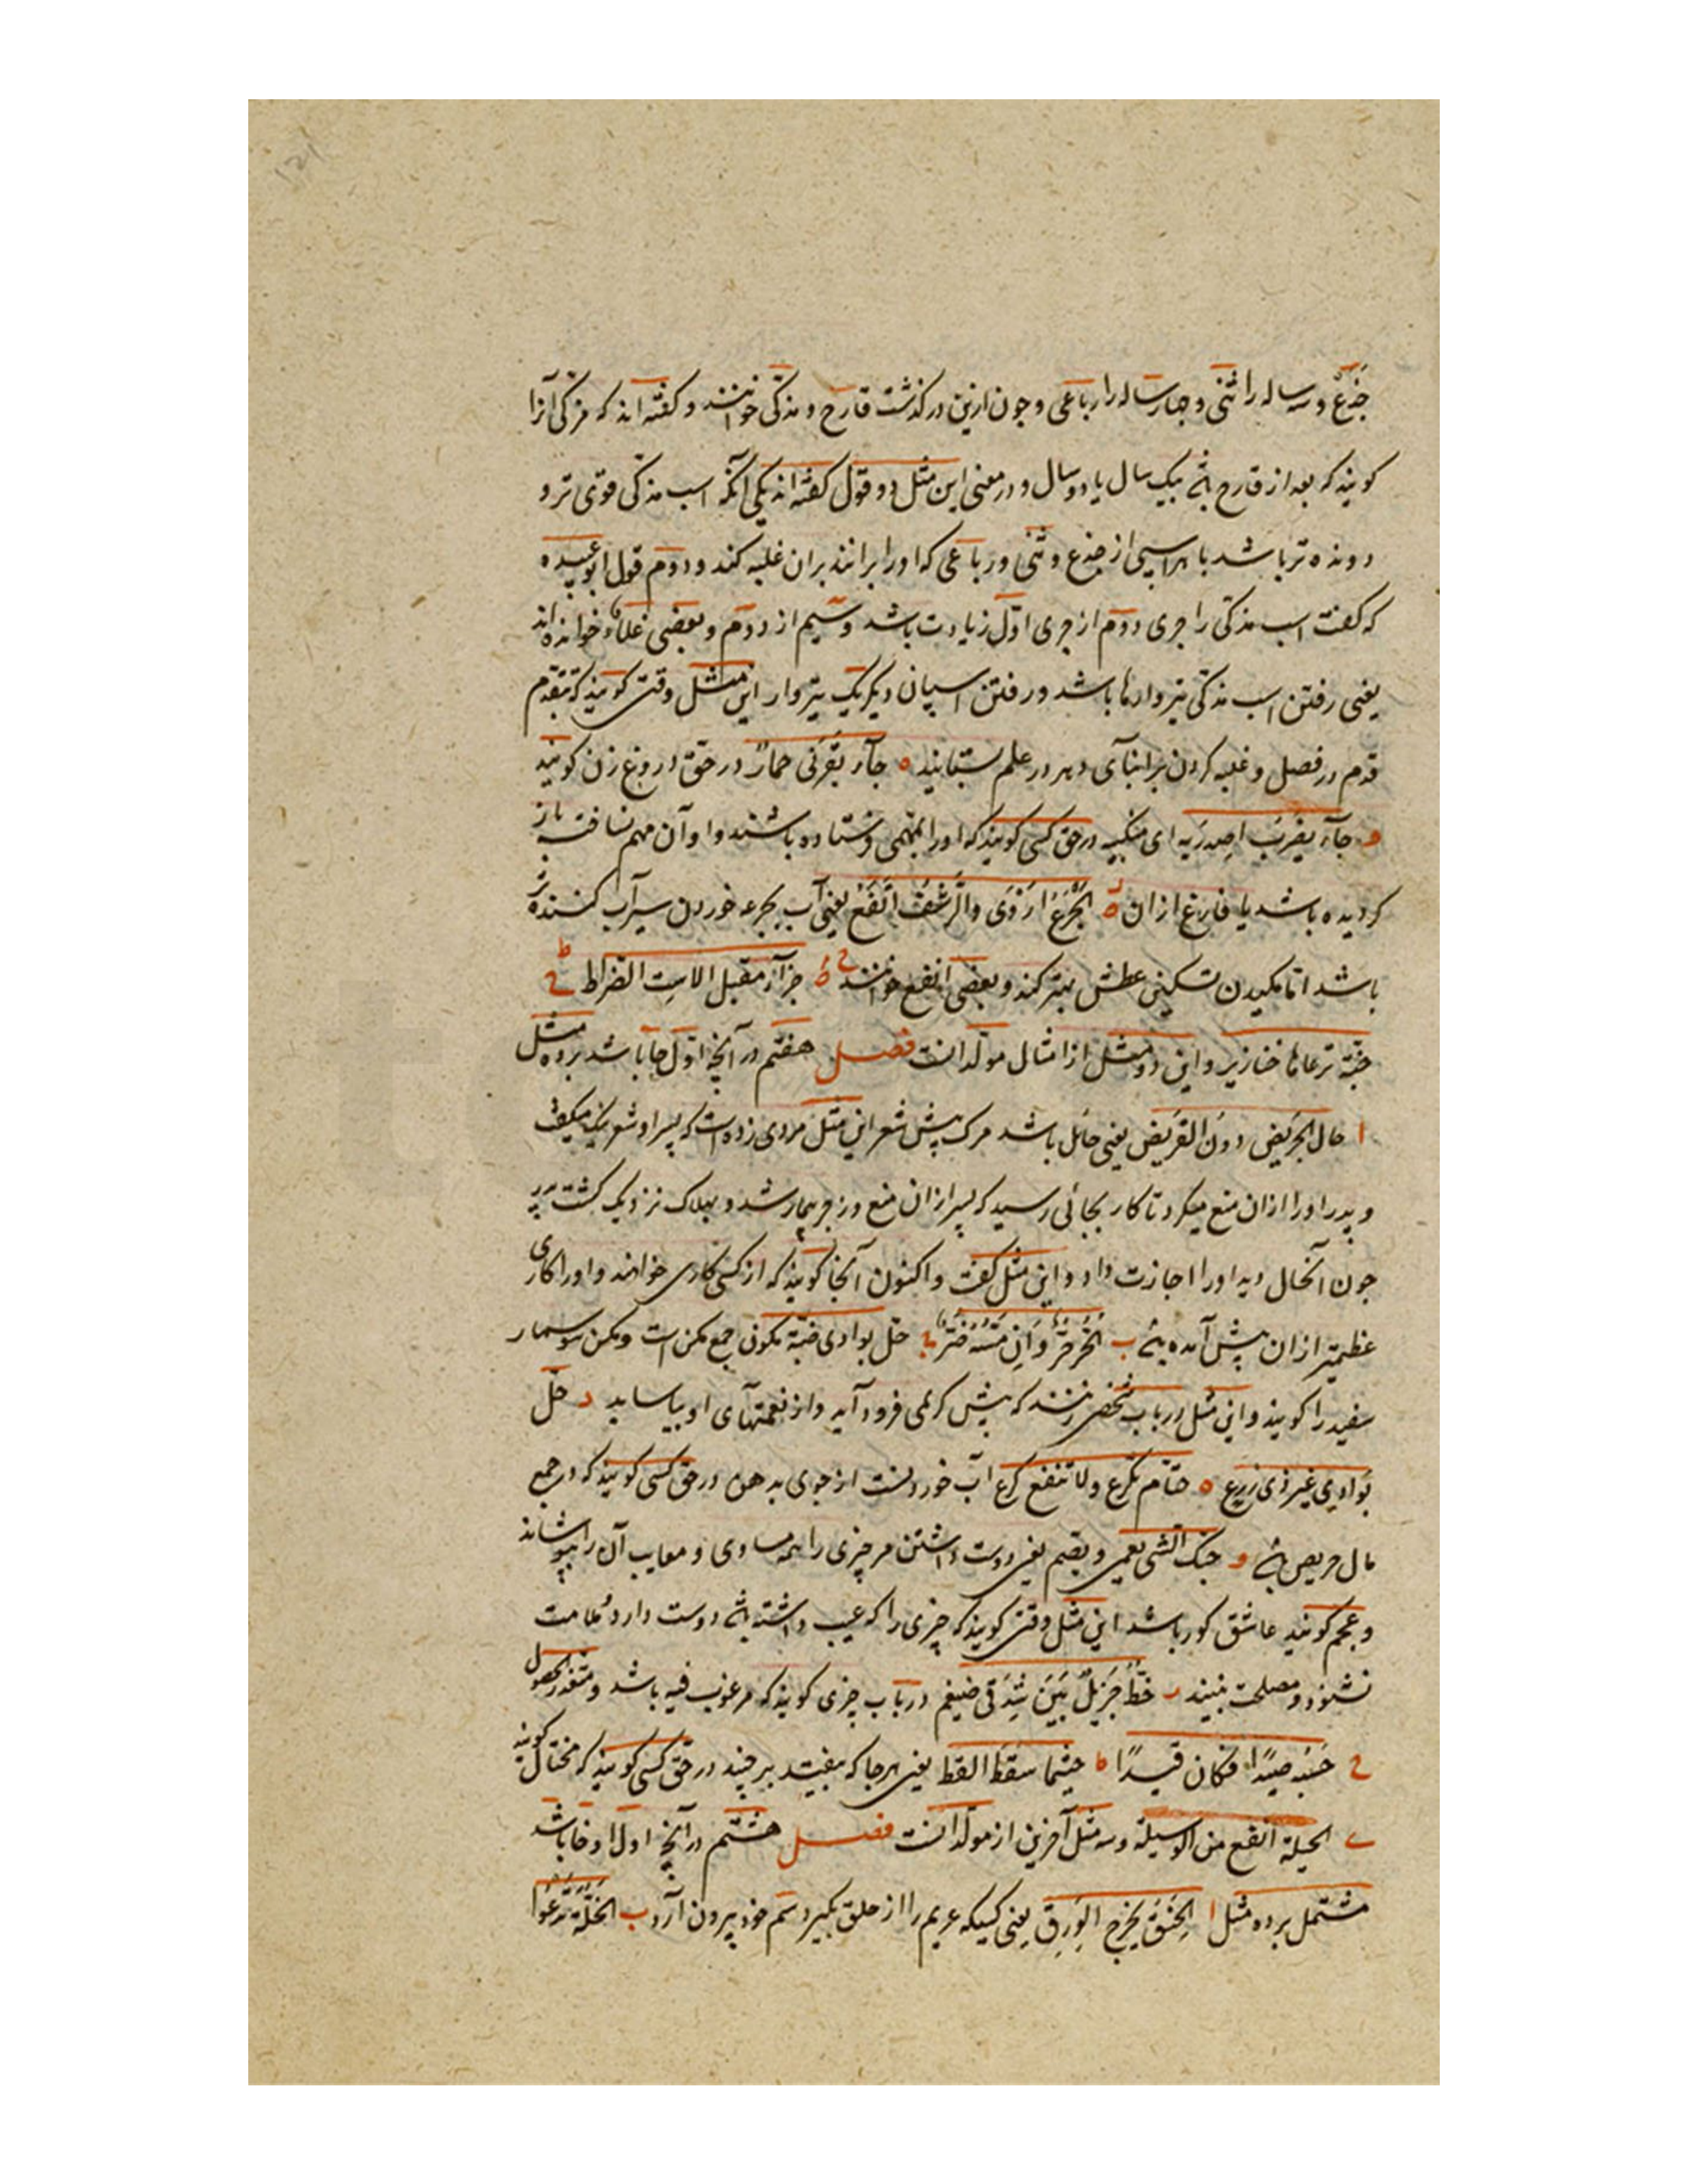 جذع و سه ساله را ثنی و چهار ساله را رباعی و چون ازین درگذشت قارح و مذکی خوانند و گفته اند که مذکی آنرا
کویند که بعد از قارح بیک سال یا دو سال و در معنی این مثل دو قول گفته اند یکی آنکه اسب مذکی قوی تر و
دونده تر باشد با هر اسپی از جذع و ثنی و رباعی که او را برانند بران غلبه کند و دوم قول ابو عبیده
که گفت اسب مذکی را جری دوم از جری اول زیادت باشد و سیم از دوم و بعضی غلاء خوانده اند
یعنی رفتن اسب مذکی تیروارها باشد و رفتن اسپان دیگر یک تیروار این مثل وقتی کویند که تقدم
قدم در فصل و غلبه کردن بر ابنآی دهر در علم بستایند ه جآء بقرنی حمار در حق دروغ زن کویند
و جآء یضرب اصدریه ای منکبیه در حق کسی کویند که او را بمهمی فرستاده باشند و او آن مهم نساخته باز
کردیده باشد یا فارغ ازان الجرع اروی والرشف انقع یعنی آب بجرعه خوردن سیرآب کننده تر
باشد اما مکیدن تسکین عطش بهتر کند و بعضی انفع خوانند ح جزآء مقبل الاست الضراط ط
جنة ترعاها خنازیر و این دو مثل از امثال مولدانست فصل هفتم در آنچه اول حا باشد بر ده مثل
ا حال الجریض دون القریض یعنی حائل باشد مرک پیش شعر این مثل مردی زده است که پسر او شعر نیک میکفت
و پدر او را ازان منع میکرد تا کار بجائی رسید که پسر ازان منع و زجر بیمار شد و بهلاک نزدیک کشت پدر
چون آنحال دید او را اجازت داد و این مثل گفت و اکنون آنجا کویند که از کسی کاری خواهند و او را کاری
عظیمتر ازان پیش آمده ب الحر حر و ان مسه ضر ج حل بوادی ضبة مکون جمع مکن است و مکن سوسمار
سفید را کویند و این مثل در باب شخصی زنند که پیش کریمی فرود آید و از نعمتهآی او بیاساید د حل
بوادی غیر ذی زرع ه حتام تکرع ولا تنقع کرع آب خوردنست از جوی بدهن در حق کسی کویند که در جمع
مال حریص و حبک الشی یعمی و یصم یعنی دوست داشتن مر چیزی را همه مساوی و معایب آن را بپوشاند
و عجم کویند عاشق کور باشد این مثل وقتی کویند که چیزی را که عیب داشته دوست دارد و ملامت
نشنود و مصلحت نبیند ز حظ جزیل بین شدقی ضیغم در باب چیزی کویند که مرغوب فیه باشد و متعذر الحصول
ح حسبه صیدا فکان قیدا ط حیثما سقط لقط یعنی هر جا که بیفتد برچیند در حق کسی کویند که محتال
ی الحیلة انفع من الوسیلة و سه مثل آخرین از مولدانست فصل هشتم در آنچه اول او خا باشد
مشتمل بر ده مثل ا الخنق یخرج الورق یعنی کسیکه غریم را از حلق بگیرد سیم خود بیرون آرد ب الخلة تدعو